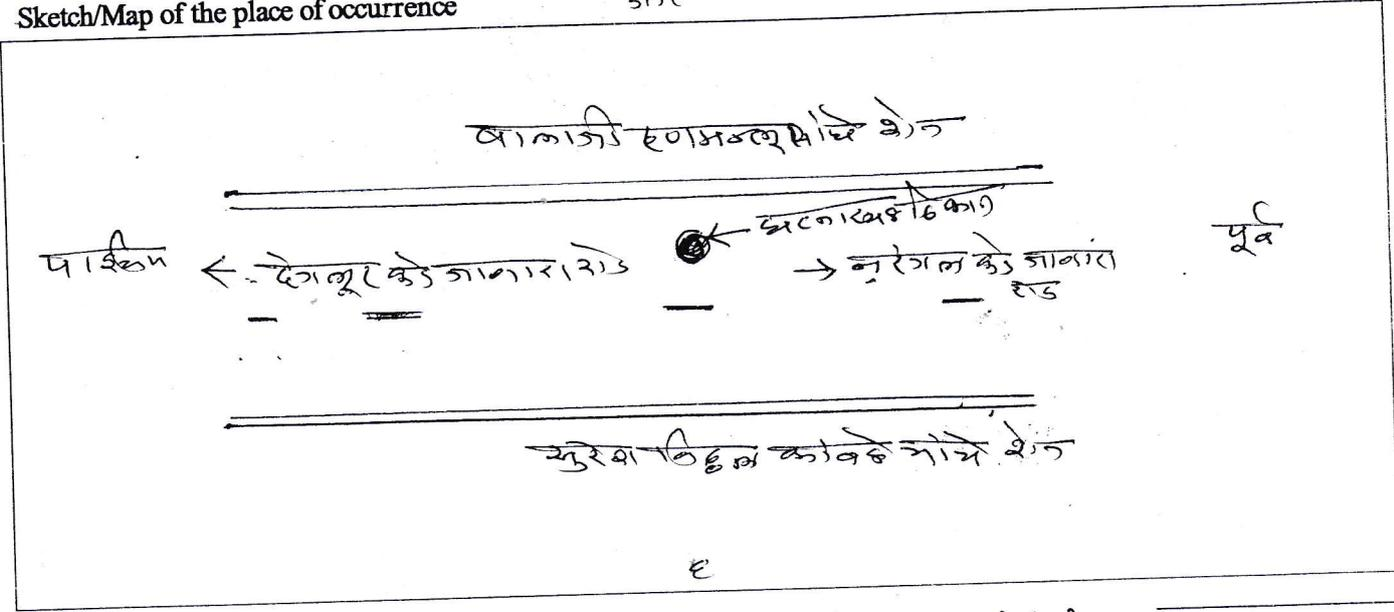 Sketch/Map of the place of occurrence
बालाजी हणमन्लू यांचे शेत
← घटनास्थळ ठिकाण
पूर्व
पश्चिम
← देगलूर कडे जाणारा रोड
→ नरंगल कडे जाणारा
रोड
सुरेश विठ्ठल कांबळे यांचे शेत